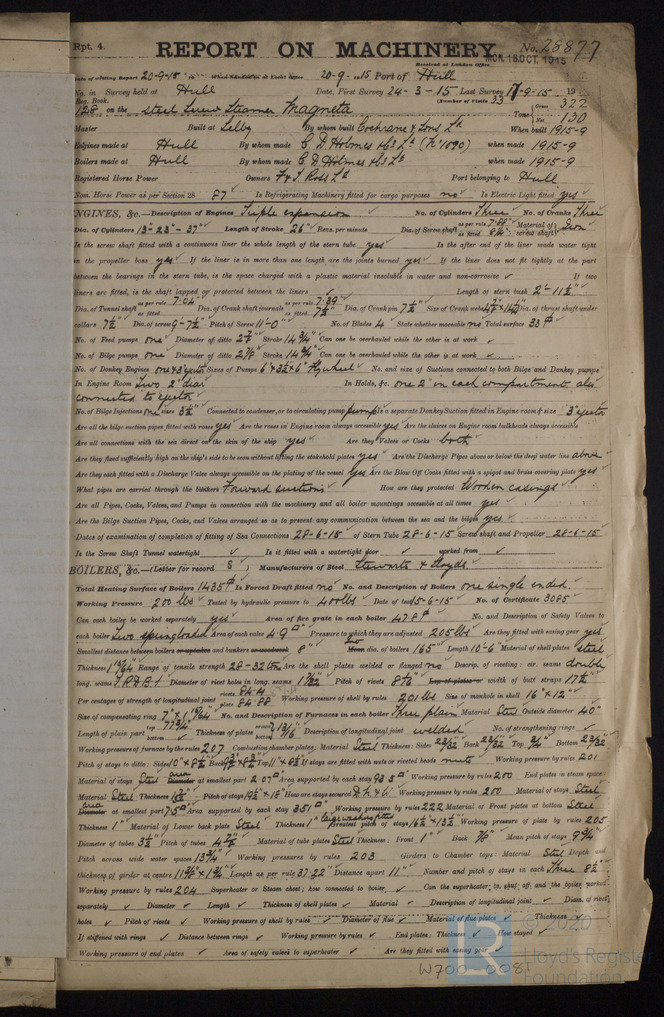 Rpt. 4.
REPORT ON MACHINERY.
No. 28877
MON. 18 OCT. 1915
Received at London Office
Date of writing Report 20-9-15 When handed in at Local Office 20-9-15 Port of Hull
No. in Survey held at Hull Date, First Survey 24-3-15 Last Survey 17-9-15 19
Reg. Book. (Number of Visits 33
128 on the steel Screw Steamer Magneta Tons Gross 322 Net 130
Master Built at Selby By whom built Cochrane & Sons Ld When built 1915-9
Engines made at Hull By whom made C. D. Holmes & Co Ld (No 1090) when made 1915-9
Boilers made at Hull By whom made C. D. Holmes & Co Ld when made 1915-9
Registered Horse Power Owners F & T Ross Ld Port belonging to Hull
Nom. Horse Power as per Section 28 87 Is Refrigerating Machinery fitted for cargo purposes no Is Electric Light fitted yes
ENGINES, &c.—Description of Engines Triple expansion No. of Cylinders Three No. of Cranks Three
Dia. of Cylinders 13"-23"-37" Length of Stroke 26" Revs. per minute Dia. of Screw shaft as per rule 7.88" as fitted 8¼" Material of screw shaft Iron
Is the screw shaft fitted with a continuous liner the whole length of the stern tube yes Is the after end of the liner made water tight
in the propeller boss yes If the liner is in more than one length are the joints burned yes If the liner does not fit tightly at the part
between the bearings in the stern tube, is the space charged with a plastic material insoluble in water and non-corrosive If two
liners are fitted, is the shaft lapped or protected between the liners Length of stern bush 2'-11½"
Dia. of Tunnel shaft as per rule 7.04" as fitted Dia. of Crank shaft journals as per rule 7.39" as fitted 7½" Dia. of Crank pin 7½" Size of Crank webs Dia. of thrust shaft under
collars 7½" Dia. of screw 9'-7½" Pitch of Screw 11'-0" No. of Blades 4 State whether moveable no Total surface 33
No. of Feed pumps one Diameter of ditto 2⅞" Stroke 14¾" Can one be overhauled while the other is at work
No. of Bilge pumps one Diameter of ditto 2⅞" Stroke 14¾" Can one be overhauled while the other is at work
No. of Donkey Engines one & ejector Sizes of Pumps 6"x3½"x6" Flywheel No. and size of Suctions connected to both Bilge and Donkey pumps
In Engine Room Two 2" diar In Holds, &c. one 2" in each compartment also
connected to ejector
No. of Bilge Injections one sizes 3½" Connected to condenser, or to circulating pump pump Is a separate Donkey Suction fitted in Engine room & size 3" ejector
Are all the bilge suction pipes fitted with roses yes Are the roses in Engine room always accessible yes Are the sluices on Engine room bulkheads always accessible
Are all connections with the sea direct on the skin of the ship yes Are they Valves or Cocks both
Are they fixed sufficiently high on the ship's side to be seen without lifting the stokehold plates yes Are the Discharge Pipes above or below the deep water line above
Are they each fitted with a Discharge Valve always accessible on the plating of the vessel yes Are the Blow Off Cocks fitted with a spigot and brass covering plate yes
What pipes are carried through the bunkers Forward suctions How are they protected Wooden casings
Are all Pipes, Cocks, Valves, and Pumps in connection with the machinery and all boiler mountings accessible at all times yes
Are the Bilge Suction Pipes, Cocks, and Valves arranged so as to prevent any communication between the sea and the bilges yes
Dates of examination of completion of fitting of Sea Connections 28-6-15 of Stern Tube 28-6-15 Screw shaft and Propeller 28-6-15
Is the Screw Shaft Tunnel watertight Is it fitted with a watertight door worked from
BOILERS, &c.—(Letter for record S) Manufacturers of Steel Stewarts & Lloyds
Total Heating Surface of Boilers 1435 Is Forced Draft fitted no No. and Description of Boilers one single ended
Working Pressure 200 lbs Tested by hydraulic pressure to 400 lbs Date of test 15-6-15 No. of Certificate 3085
Can each boiler be worked separately Area of fire grate in each boiler 47.8 No. and Description of Safety Valves to
each boiler Two springloaded Area of each valve 4.9 Pressure to which they are adjusted 205 lbs Are they fitted with easing gear yes
Smallest distance between boilers or uptakes and bunkers or woodwork 8" Mean dia. of boilers 165" Length 10'-6" Material of shell plates Steel
Thickness Range of tensile strength 28-32 tons Are the shell plates welded or flanged no Descrip. of riveting: cir. seams double
long. seams T.R.D.B.S Diameter of rivet holes in long. seams Pitch of rivets Lap of plates or width of butt straps
Per centages of strength of longitudinal joint rivets 84.4 plate 84.88 Working pressure of shell by rules 201 lbs Size of manhole in shell 16"x12"
Size of compensating ring No. and Description of Furnaces in each boiler Three plain Material Steel Outside diameter 40"
Length of plain part Thickness of plates Description of longitudinal joint welded No. of strengthening rings
Working pressure of furnace by the rules 207 Combustion chamber plates: Material Steel Thickness: Sides 23/32 Back 23/32 Top 3/4 Bottom 23/32
Pitch of stays to ditto: Sides 10"x8½" Back Top 11"x8½" If stays are fitted with nuts or riveted heads nuts Working pressure by rules 201
Material of stays Steel area Diameter at smallest part 2.07 Area supported by each stay 93.5 Working pressure by rules 200 End plates in steam space
Material Steel Thickness Pitch of stays 19½"x18" How are stays secured D.N.&W. Working pressure by rules 200 Material of stays Steel
Area Diameter at smallest part 7.5 Area supported by each stay 351 Working pressure by rules 222 Material of Front plates at bottom Steel
Thickness 1" Material of Lower back plate Steel Thickness 1" Greatest pitch of stays Working pressure of plate by rules 205
Diameter of tubes 3½" Pitch of tubes Material of tube plates Steel Thickness: Front 1" Back 7/8" Mean pitch of stays 9¾"
Pitch across wide water spaces 13¾" Working pressures by rules 203 Girders to Chamber tops: Material Steel Depth and
thickness of girder at centre Length as per rule 37.22" Distance apart 11" Number and pitch of stays in each Three 8½"
Working pressure by rules 204 Superheater or Steam chest; how connected to boiler Can the superheater be shut off and the boiler worked
separately Diameter Length Thickness of shell plates Material Description of longitudinal joint Diam. of rivet
holes Pitch of rivets Working pressure of shell by rules Diameter of flue Material of flue plates Thickness
If stiffened with rings Distance between rings Working pressure by rules End plates: Thickness How stayed
Working pressure of end plates Area of safety valves to superheater Are they fitted with easing gear
W700-0081
© 2020
Lloyd's Register
Foundation